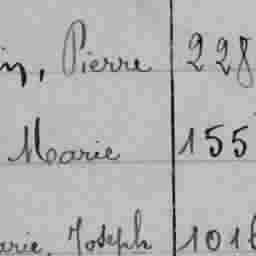 in, Pierre 228
Marie 155
arie, Joseph 1016